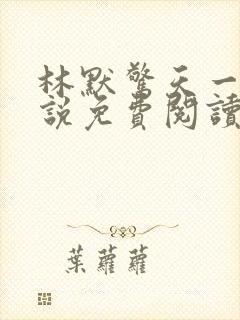 林默驚天一
説免費閱讀
葉蘿蘿